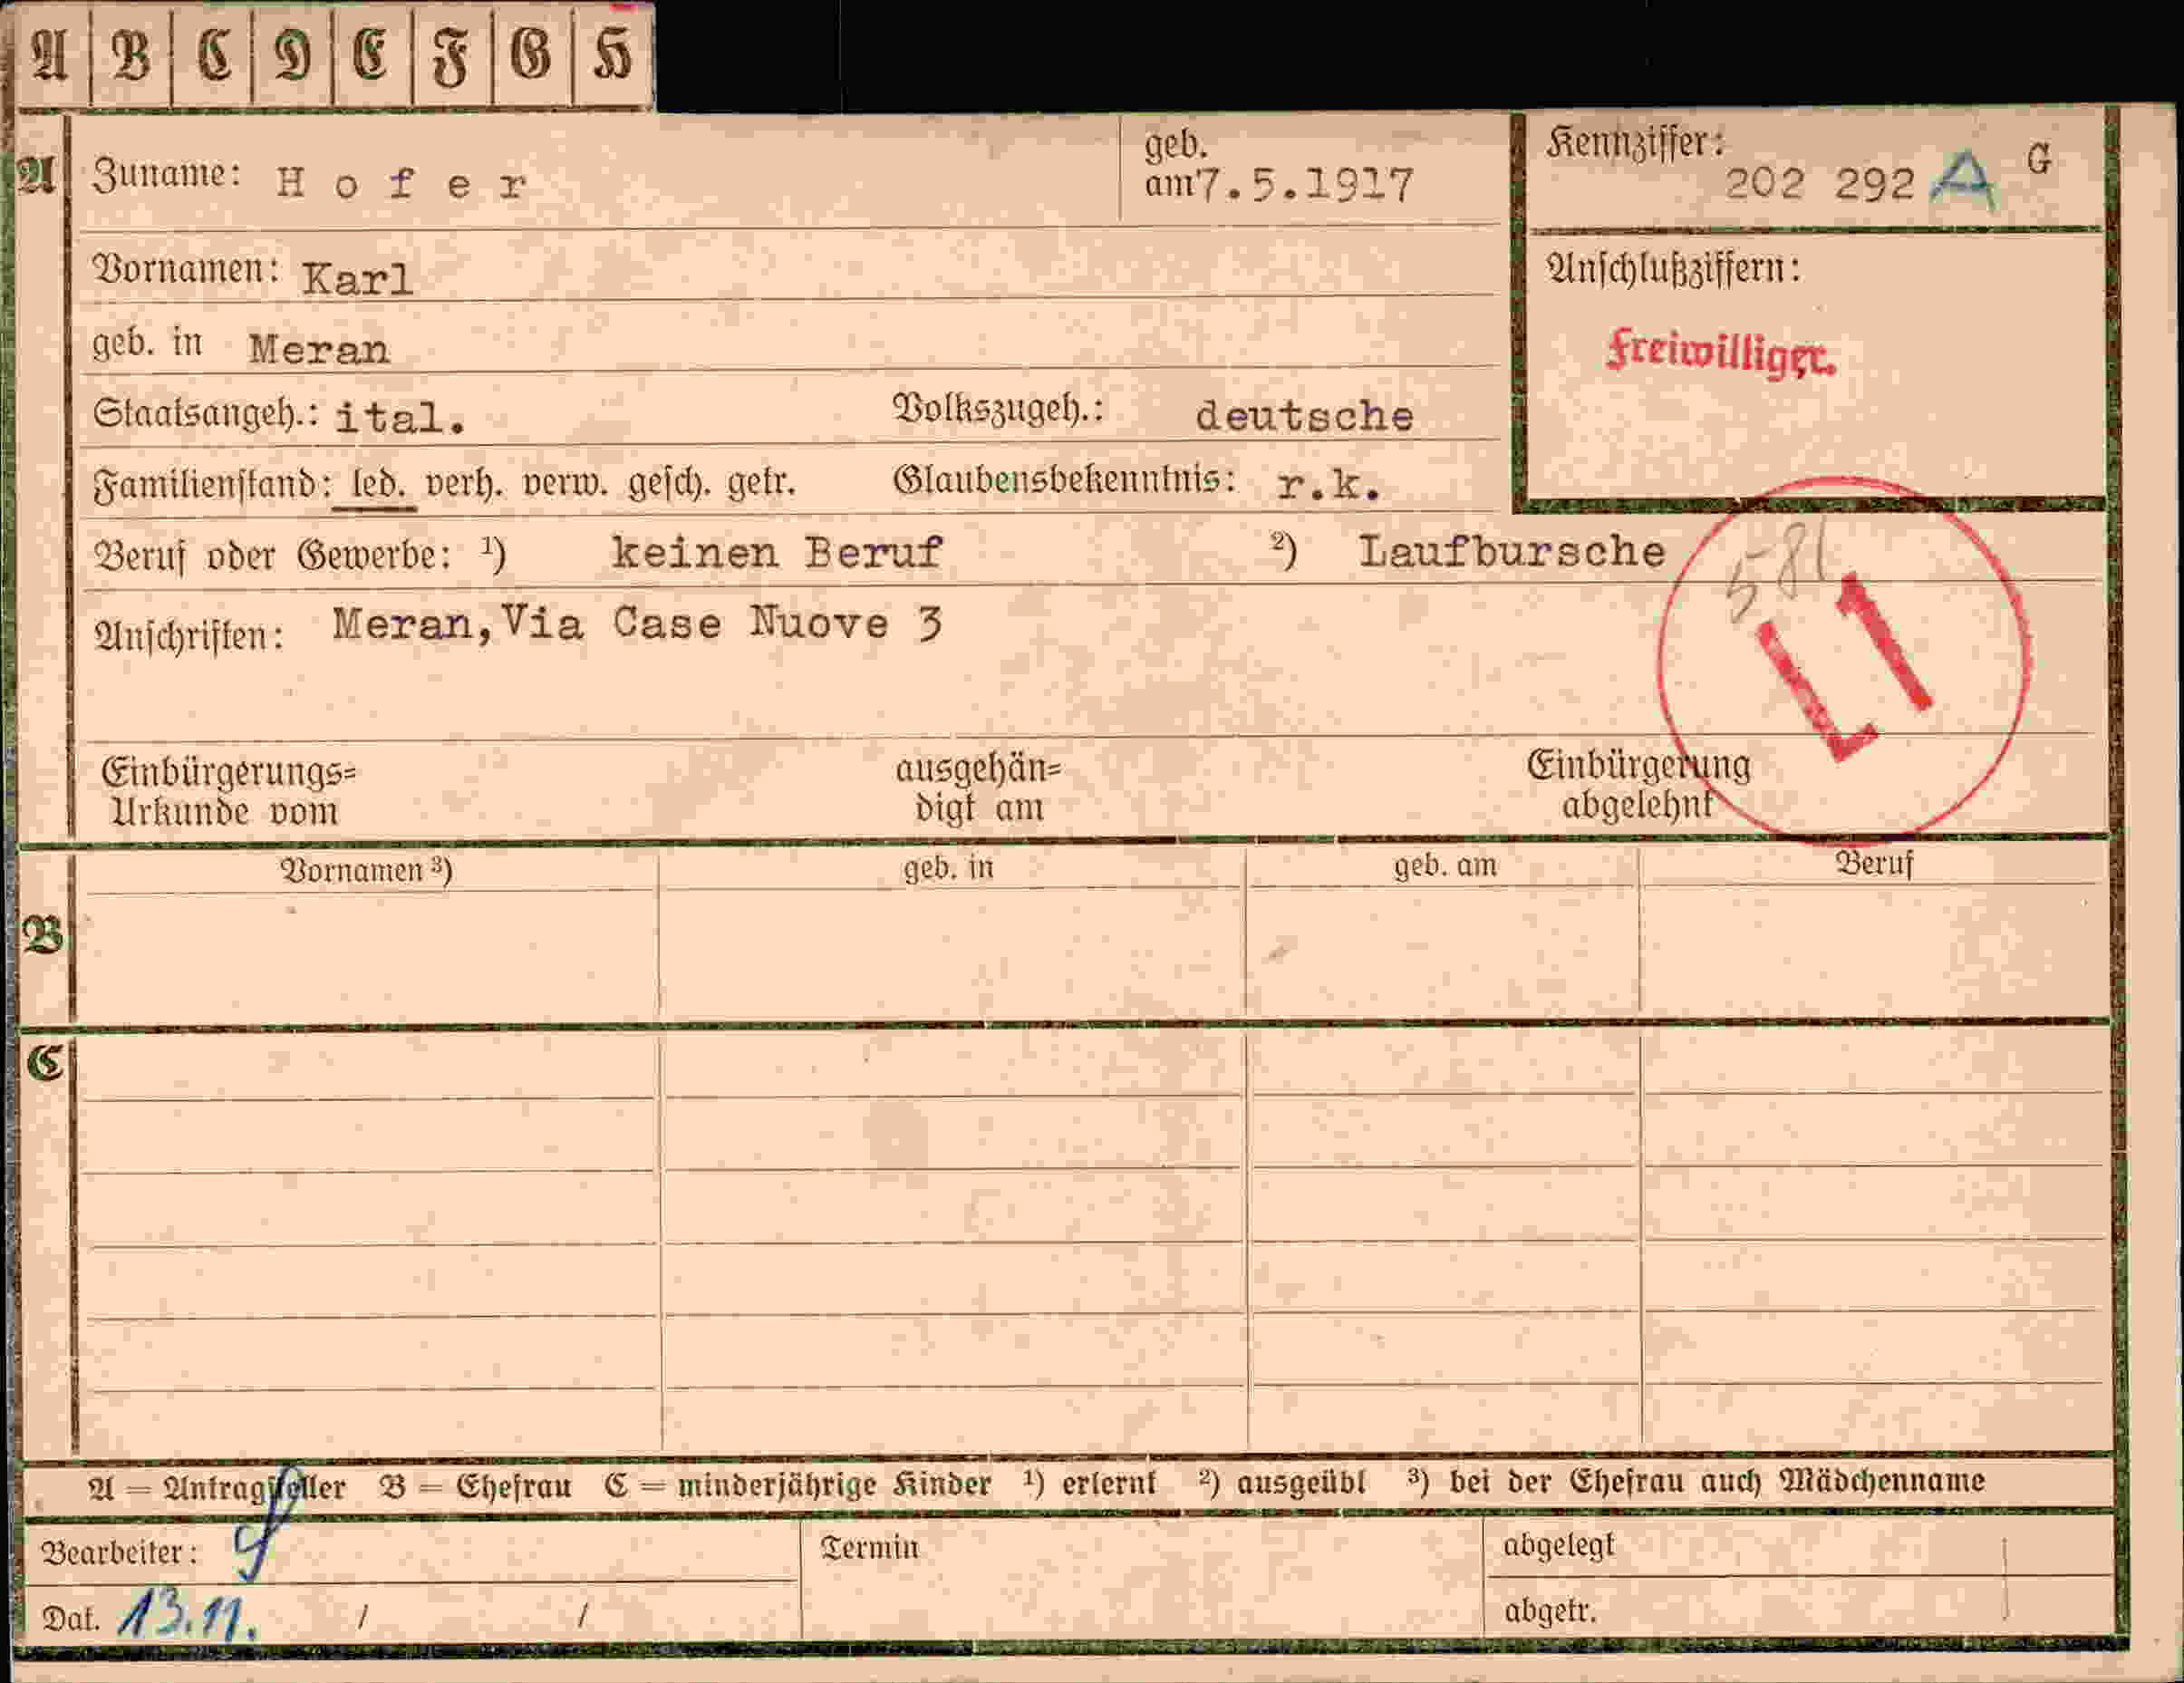 A B C D E F G H
A Zuname: Hofer geb. am 7.5.1917 Kennziffer: 202 292 A G
Vornamen: Karl Anschlußziffern:
geb. in Meran freiwilliger.
Staatsangeh.: ital. Volkszugeh.: deutsche
Familienstand: led. verh. verw. gesch. getr. Glaubensbekenntnis: r.k.
Beruf oder Gewerbe: ¹) keinen Beruf ²) Laufbursche 581
Anschriften: Meran, Via Case Nuove 3 L1
Einbürgerungs= ausgehän= Einbürgerung
Urkunde vom digt am abgelehnt
Vornamen ³) geb. in geb. am Beruf
B
C
A = Antragsteller B = Ehefrau C = minderjährige Kinder ¹) erlernt ²) ausgeübt ³) bei der Ehefrau auch Mädchenname
Bearbeiter: Termin abgelegt
Dat. 13.11. / / abgetr.